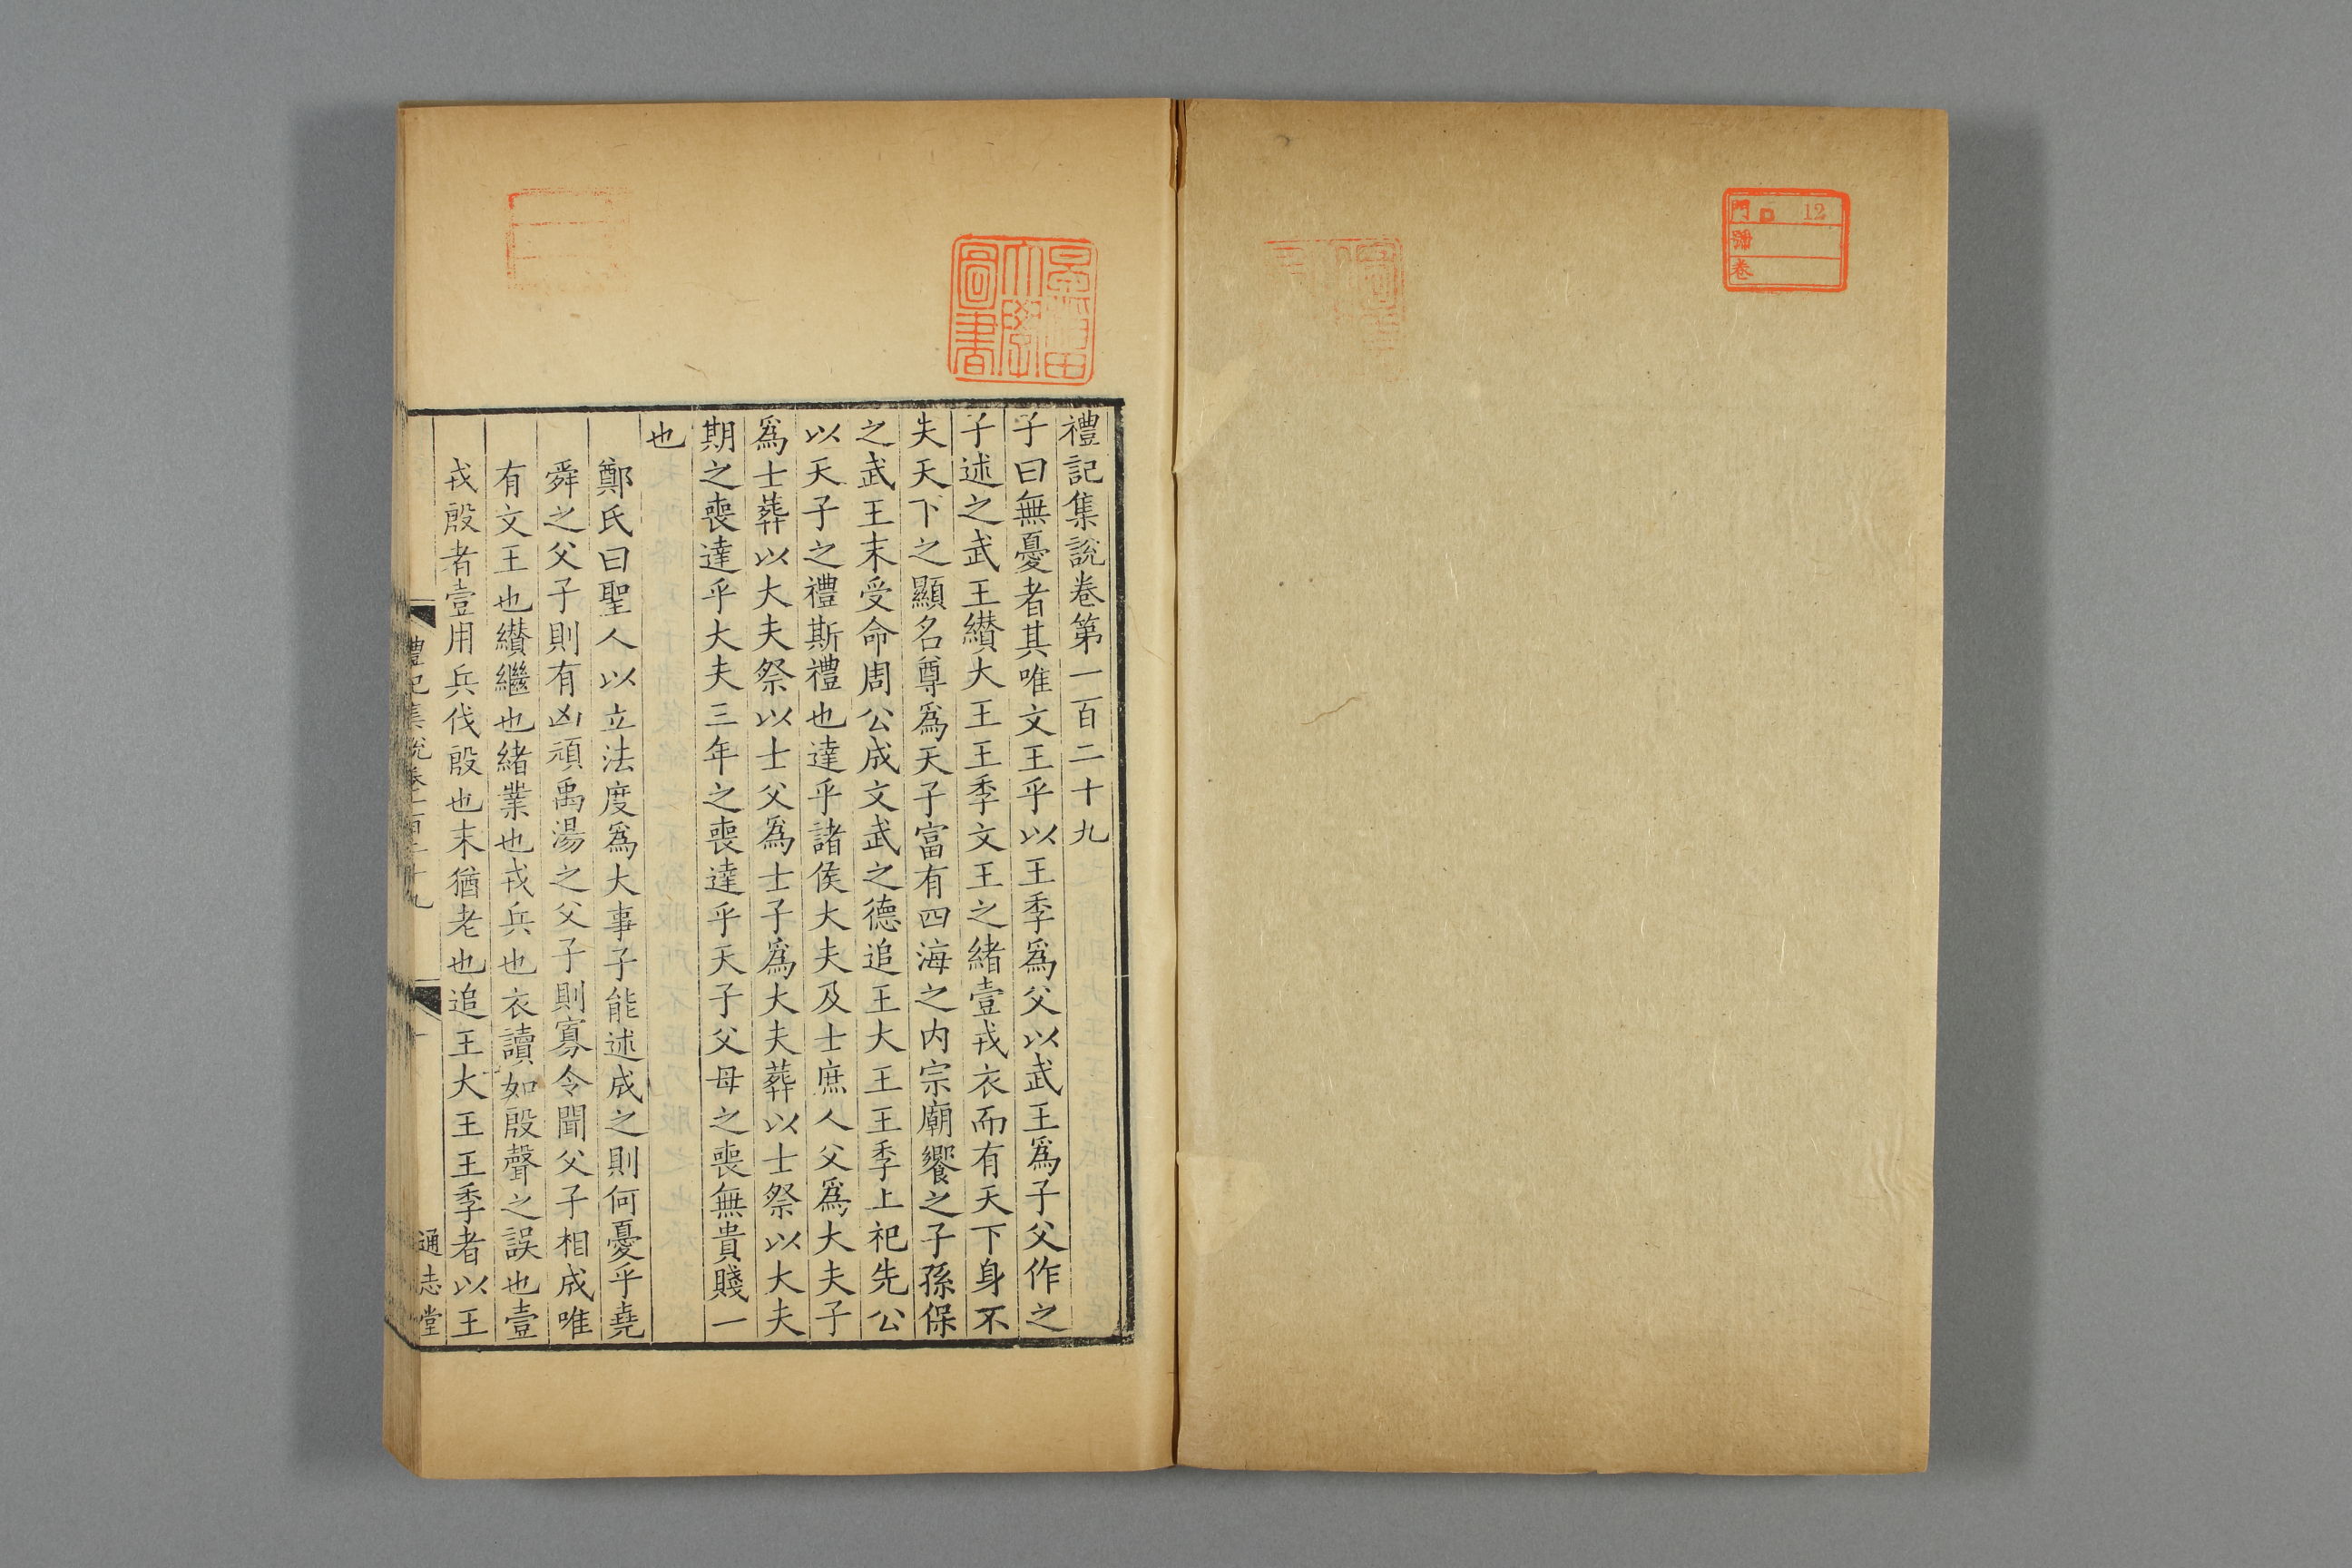 門 口 12
號
卷
早稲田
大學
圖書
禮記集說卷第一百二十九
子曰無憂者其唯文王乎以王季爲父以武王爲子父作之
子述之武王纘大王王季文王之緒壹戎衣而有天下身不
失天下之顯名尊爲天子富有四海之内宗廟饗之子孫保
之武王末受命周公成文武之德追王大王王季上祀先公
以天子之禮斯禮也達乎諸侯大夫及士庶人父爲大夫子
爲士葬以大夫祭以士父爲士子爲大夫葬以士祭以大夫
期之喪達乎大夫三年之喪達乎天子父母之喪無貴賤一
也
鄭氏曰聖人以立法度爲大事子能述成之則何憂乎堯
舜之父子則有凶頑禹湯之父子則寡令聞父子相成唯
有文王也纘繼也緒業也戎兵也衣讀如殷聲之誤也壹
戎殷者壹用兵伐殷也末猶老也追王大王王季者以王
禮記集說卷一百二十九 一 通志堂